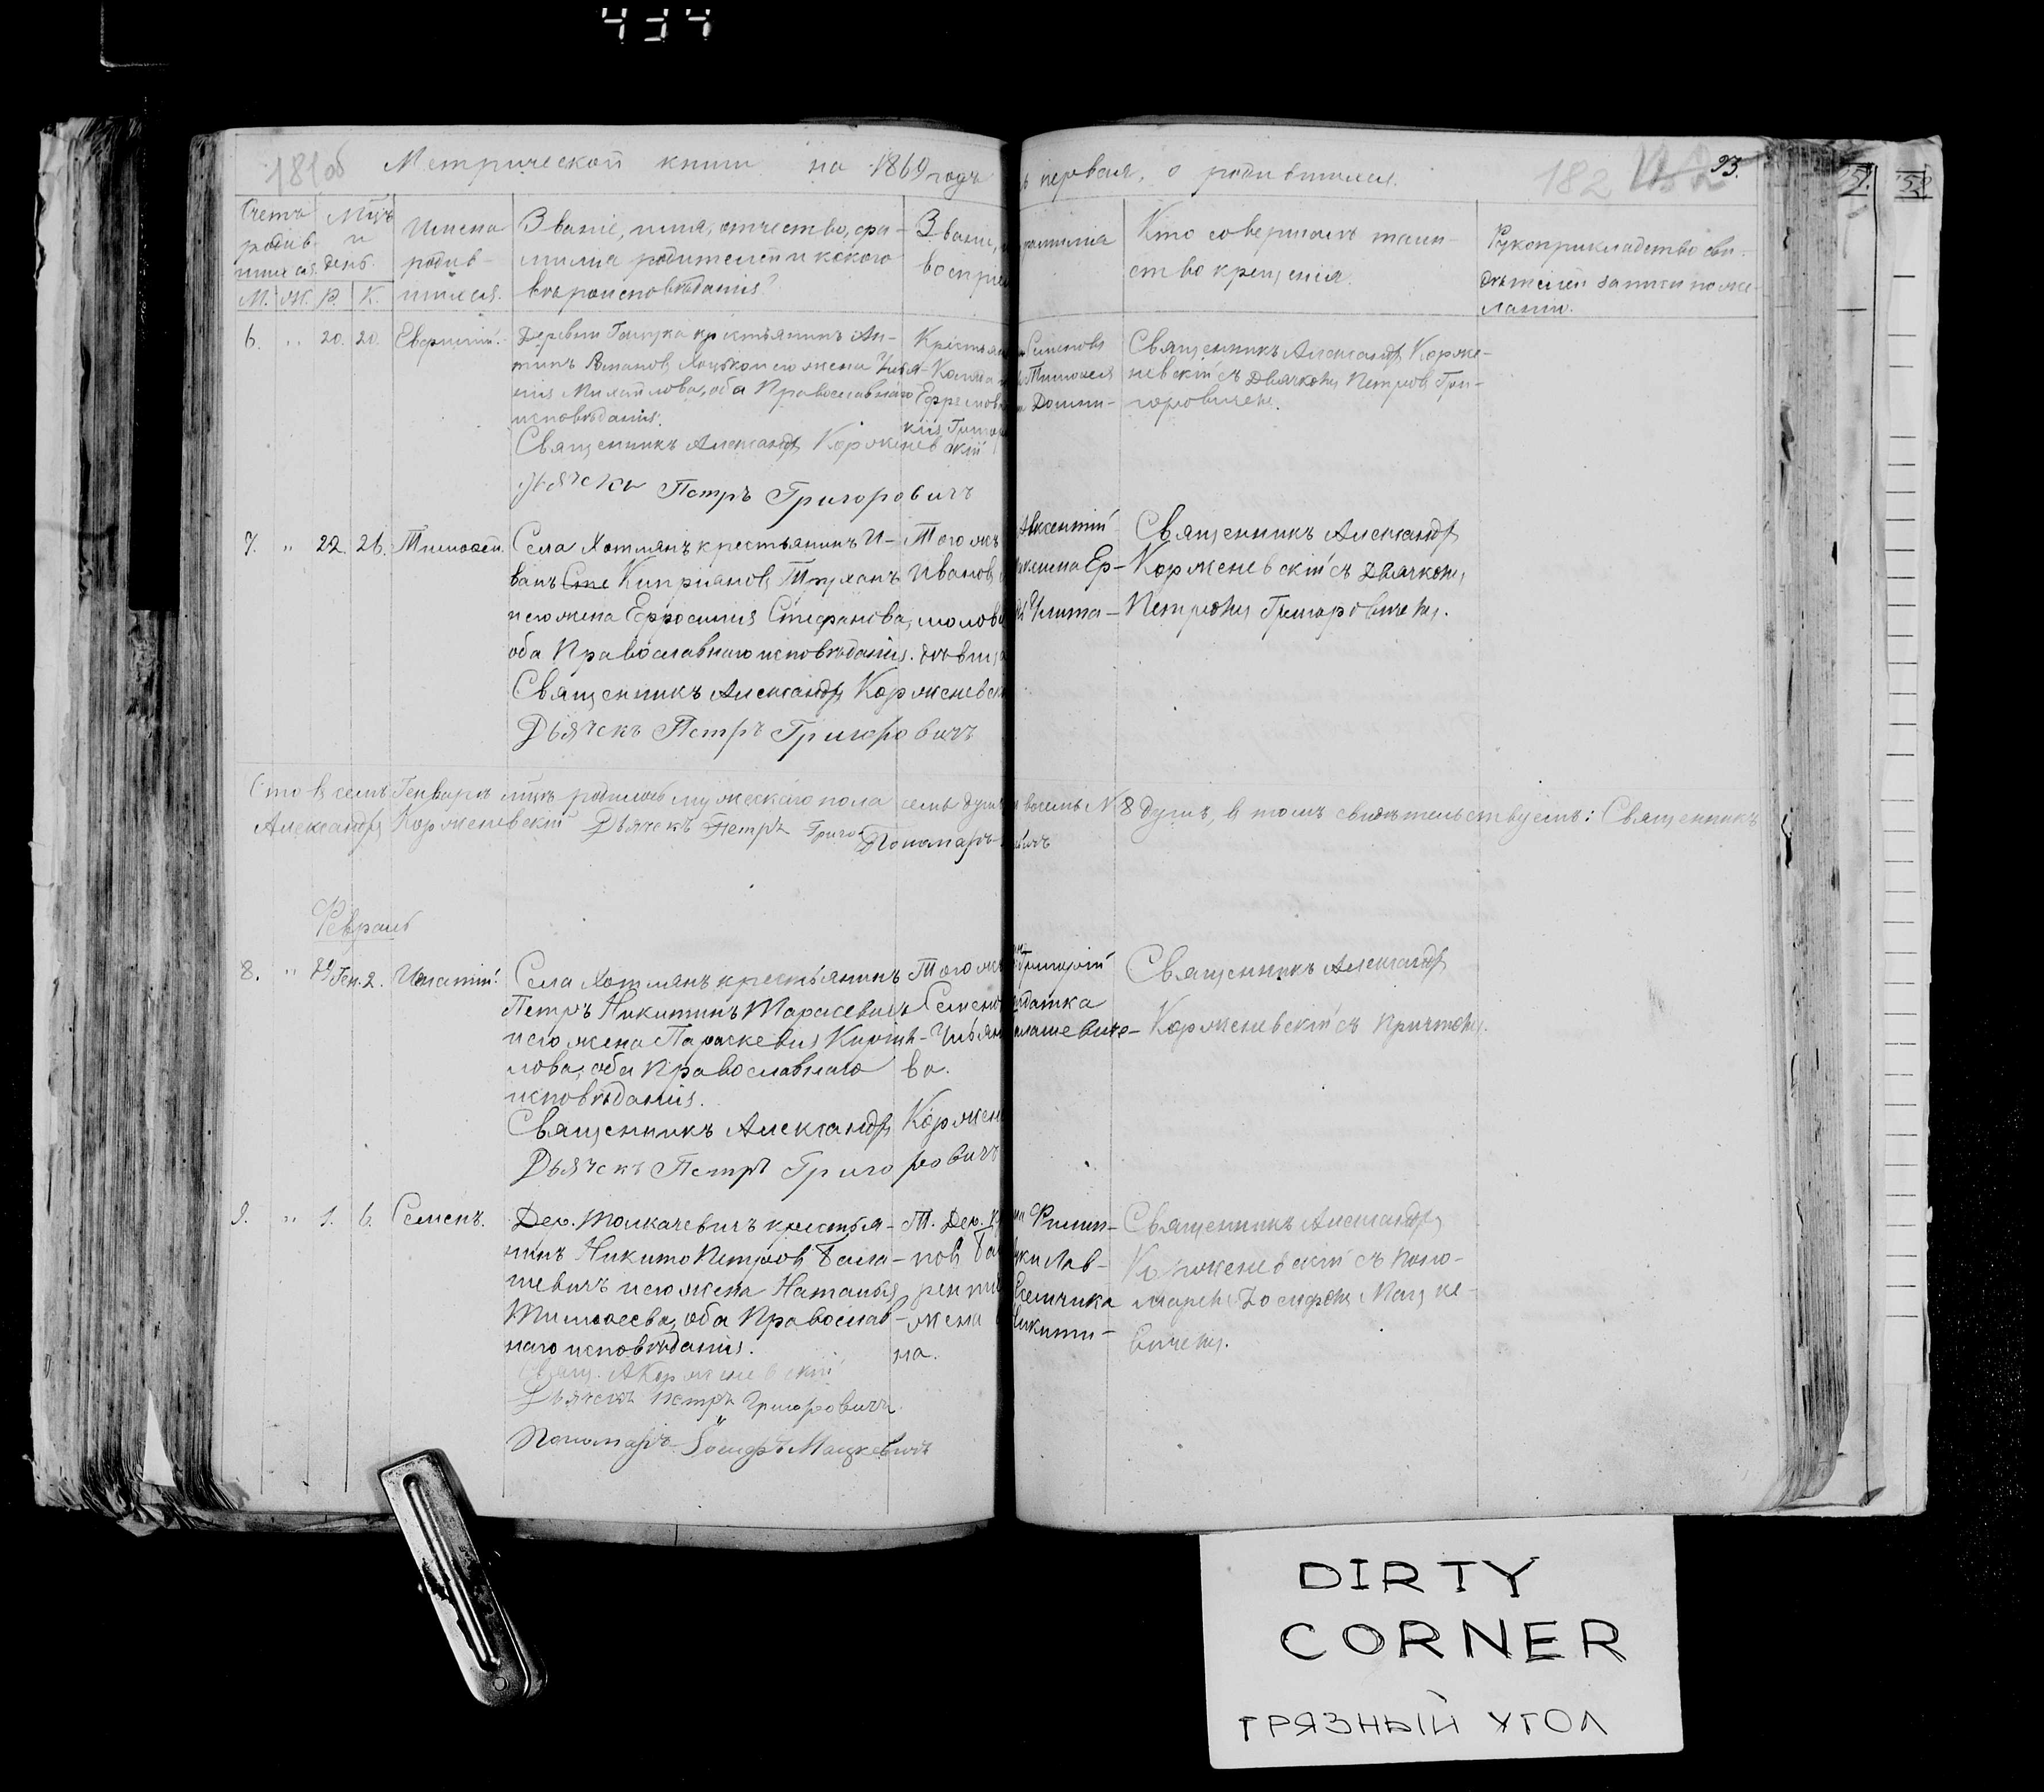 434
181об Метрической книги на 1869 годъ
ь первая, о родившихся. 182 93.
Счетъ родив- шихся. Мцъ и день. Имена родив- шихся.
М. Ж. Р. К.
Званіе, имя, отчество, фа-
милія родителей и какого
вѣроисповѣданія?
Званіе, и
воспріе
фамилія
Кто совершалъ таин-
ство крещенія.
Рукоприкладство сви-
дѣтелей записи по же-
ланію.
6. " 20. 20. Евфимій.
крестьянинъ Ан-
его жена
Михайлова, оба Православнаго
исповѣданія.
Священникъ Александръ Корженевскій
Дьячекъ Петръ Григоровичъ
Крестьян
Ефремов
Семеновъ
Тимофея
Священникъ Александръ Корже-
невскій съ Дьячкомъ Петромъ Гри-
горовичемъ.
7. " 22. 26. Тимофей.
Села Хотлянъ крестьянинъ И-
ванъ Сте Кипріяновъ
и его жена Ефросинія Стефанова,
оба Православнаго исповѣданія.
Священникъ Александръ Корженевск
Дьячекъ Петръ Григоровичъ
Того же
Ивановъ
дѣвица
Авксентій
Ер-
Священникъ Александръ
Корженевскій съ Дьячкомъ
Петромъ Григоровичемъ.
Что въ семъ Генварѣ мцѣ родилось мужескаго пола семь душъ
восемь № 8 душъ, в томъ свидѣтельствуемъ: Священникъ
Александръ Корженевскій Дьячекъ Петръ Григоровичъ
Пономарь
Февраль
8. " 29 Ген. 2. Игнатій.
Села Хотлянъ крестьянинъ
Петръ Никитинъ Тарасевичъ
и его жена Параскевія Кирил-
лова, оба Православнаго
исповѣданія.
Священникъ Александръ Коржен
Дьячекъ Петръ Григоровичъ
Того же
Семено
ва.
Григорій
солдатка
Балашевиче-
Священникъ Александръ
Корженевскій съ Причтомъ.
9. " 1. 6. Семенъ.
Дер. Толкачевичъ крестья-
нинъ Никита Петровъ Бала-
шевичъ и его жена Наталья
Тимофеева, оба Православ-
наго исповѣданія.
Свящ. А Корженевскій
Дьячекъ Петръ Григоровичъ
Пономарь Іосифъ Мацкевичъ
Т. Дер. кр
повъ Ба
рентія
жена
на.
Филип-
Лав-
Никити-
Священникъ Александръ
Корженевскій съ Поно-
маремъ Іосифомъ Мацке-
вичемъ.
DIRTY
CORNER
ГРЯЗНЫЙ УГОЛ